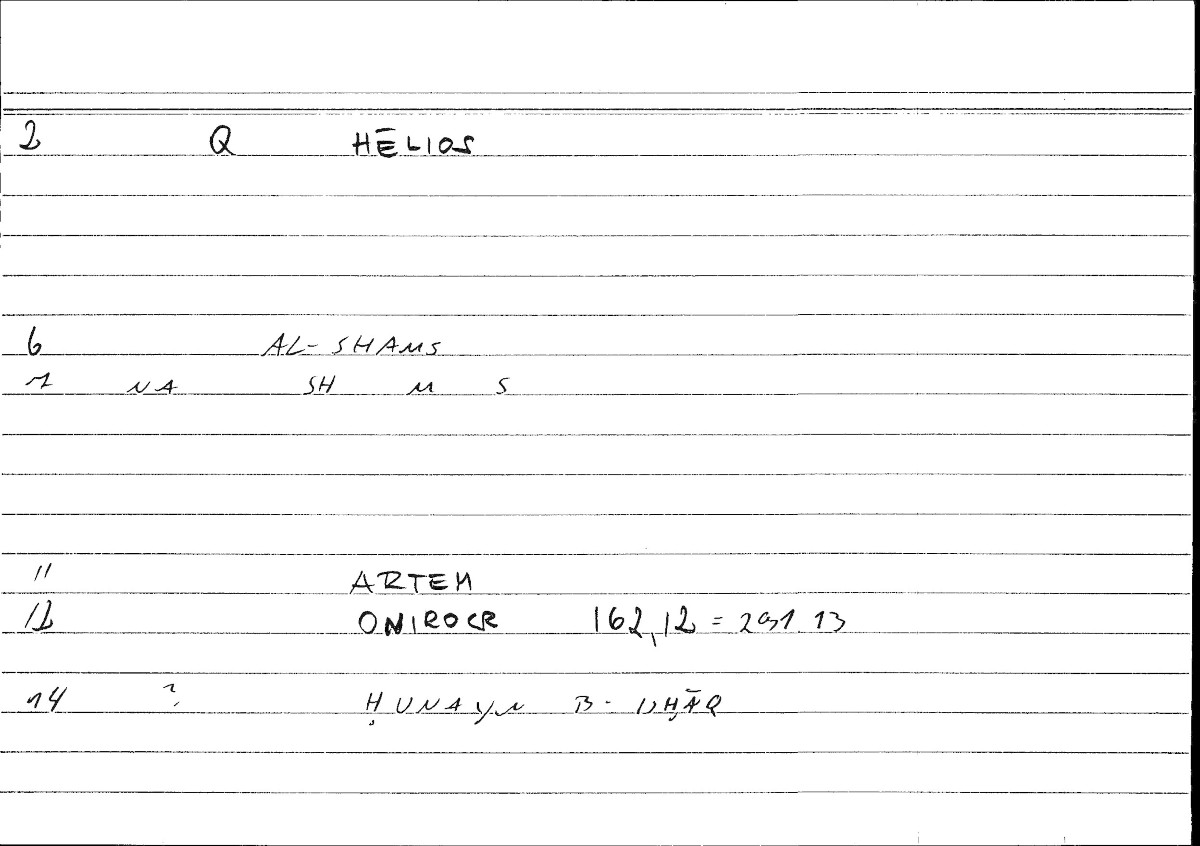 2 Q HĒLIOS
6 AL-SHAMS
7 NA SH M S
11 ARTEM
12 ONIROCR 162,12 = 291.13
14 ? ḤUNAYN B. ISḤĀQ